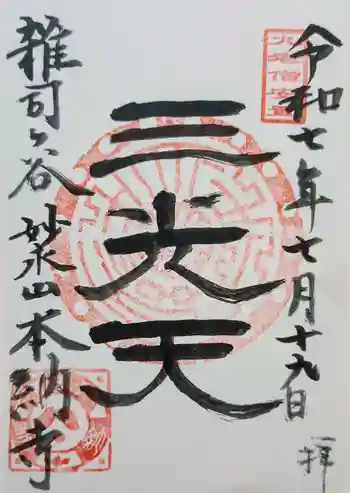 令和七年七月十九日
拝
三光天
雑司ヶ谷
妙永山本納寺